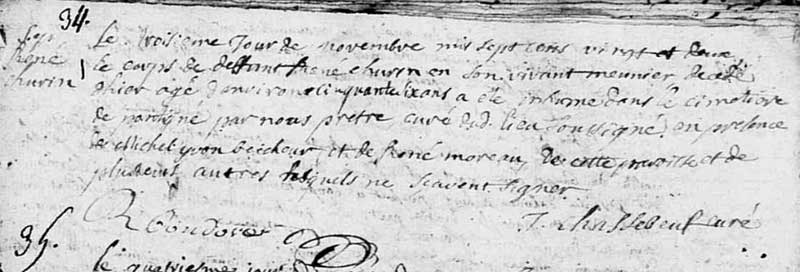 34.
Sep.
René
churin
Le troisieme Jour de novembre mis sept cens vingt et deux
le corps de deffunt René Churin en son vivant meunier decedé
d'hier agé d'environ cinquante six ans a été inhumé dans le cimetiere
de par nous pretre curé dud. lieu soussigné, en presence
de Michel yvon Becheur et de René moreau, de cette parroisse et de
plusieurs autres lesquels ne scavent signer
J. Chassebeuf curé
35.
le quatriesme jour